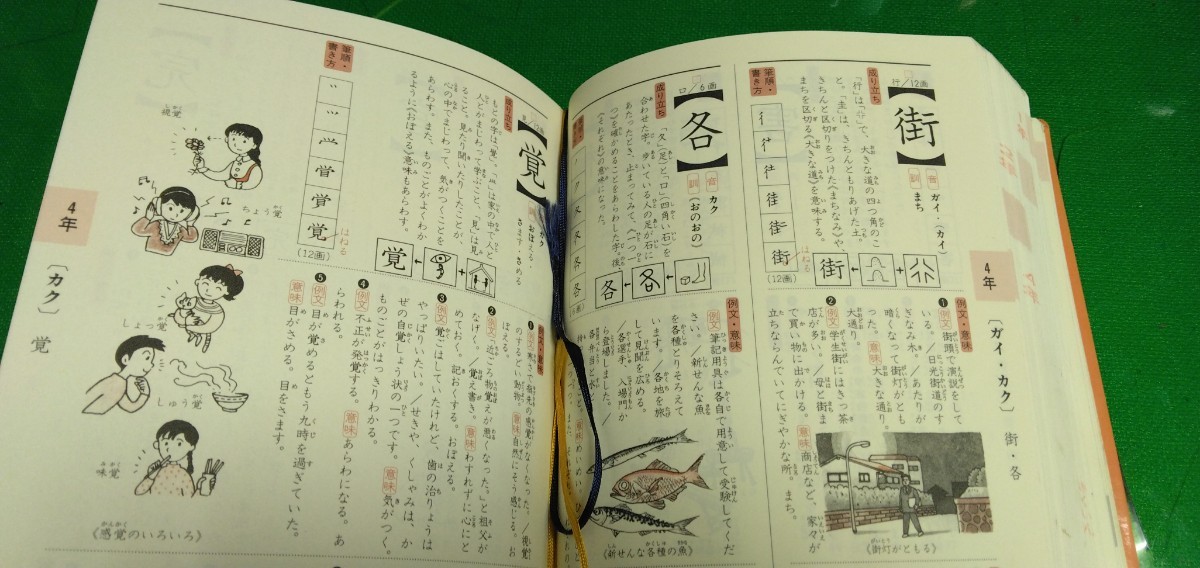 4年
〔ガイ・カク〕
街・各
行/12画
【街】
音 ガイ・(カイ)
訓 まち
成り立ち
「行」は、で、大きな道の四つ角のこ
と。「圭」は、きちんともりあげた土。
きちんと区切りをつけた〈まちなみ〉や、
まちを区切る〈大きな道〉を意味する。
筆順・書き方
はねる
(12画)
街
例文・意味
❶ 例文 街頭で演説をして
いる。/日光街道のす
ぎなみ木。/あたりが
暗くなって街灯がとも
った。 意味 大きな通り。
大通り。
❷ 例文 学生街にはきっ茶
店が多い。/母と街ま
で買い物に出かける。 意味 商店など、家々が
立ちならんでいてにぎやかな所。まち。
《街灯がともる》
口/6画
【各】
音 カク
訓 (おのおの)
成り立ち
「夂」(足)と「口」(四角い石)を
合わせた字。歩いている人の足が石に
あたったとき、止まってみて、〈一つ一
つ〉を確かめることをあらわした字。後、
〈それぞれ〉の意味になった。
各
例文・意味
例文 筆記用具は各自で用意して受験してくだ
さい。/新せんな魚
を各種とりそろえて
います。/各地を旅
して見聞を広める。
/各選手、入場門か
ら登場しました。/
《新せんな各種の魚》
【覚】
カク
おぼえる・
さます・さめる
成り立ち
人とがまじわって学ぶこと、「見」は見
ること。見たり聞いたりしたことが、
心の中でまじわって、気がつくことを
あらわす。また、ものごとがよくわか
るように〈おぼえる〉意味もあらわす。
筆順・書き方
はねる
(12画)
覚
例文・意味
❶ 例文 寒さで指先の感覚がなくなった。/視覚
❷ 例文 「近ごろ物覚えが悪くなった。」と祖父が
なげく。/覚え書き。 意味 わすれずに心にと
めておく。記おくする。おぼえる。
❸ 例文 覚ごはしていたけれど、歯の治りょうは
やっぱりいたい。/せきや、くしゃみは、か
ぜの自覚しょう状の一つです。 意味 気がつく。
ものごとがはっきりわかる。
❹ 例文 不正が発覚する。 意味 あらわになる。あ
らわれる。
❺ 例文 目が覚めるともう九時を過ぎていた。
意味 目がさめる。目をさます。
視覚
ちょう覚
しょっ覚
しゅう覚
味覚
《感覚のいろいろ》
4年
〔カク〕
覚